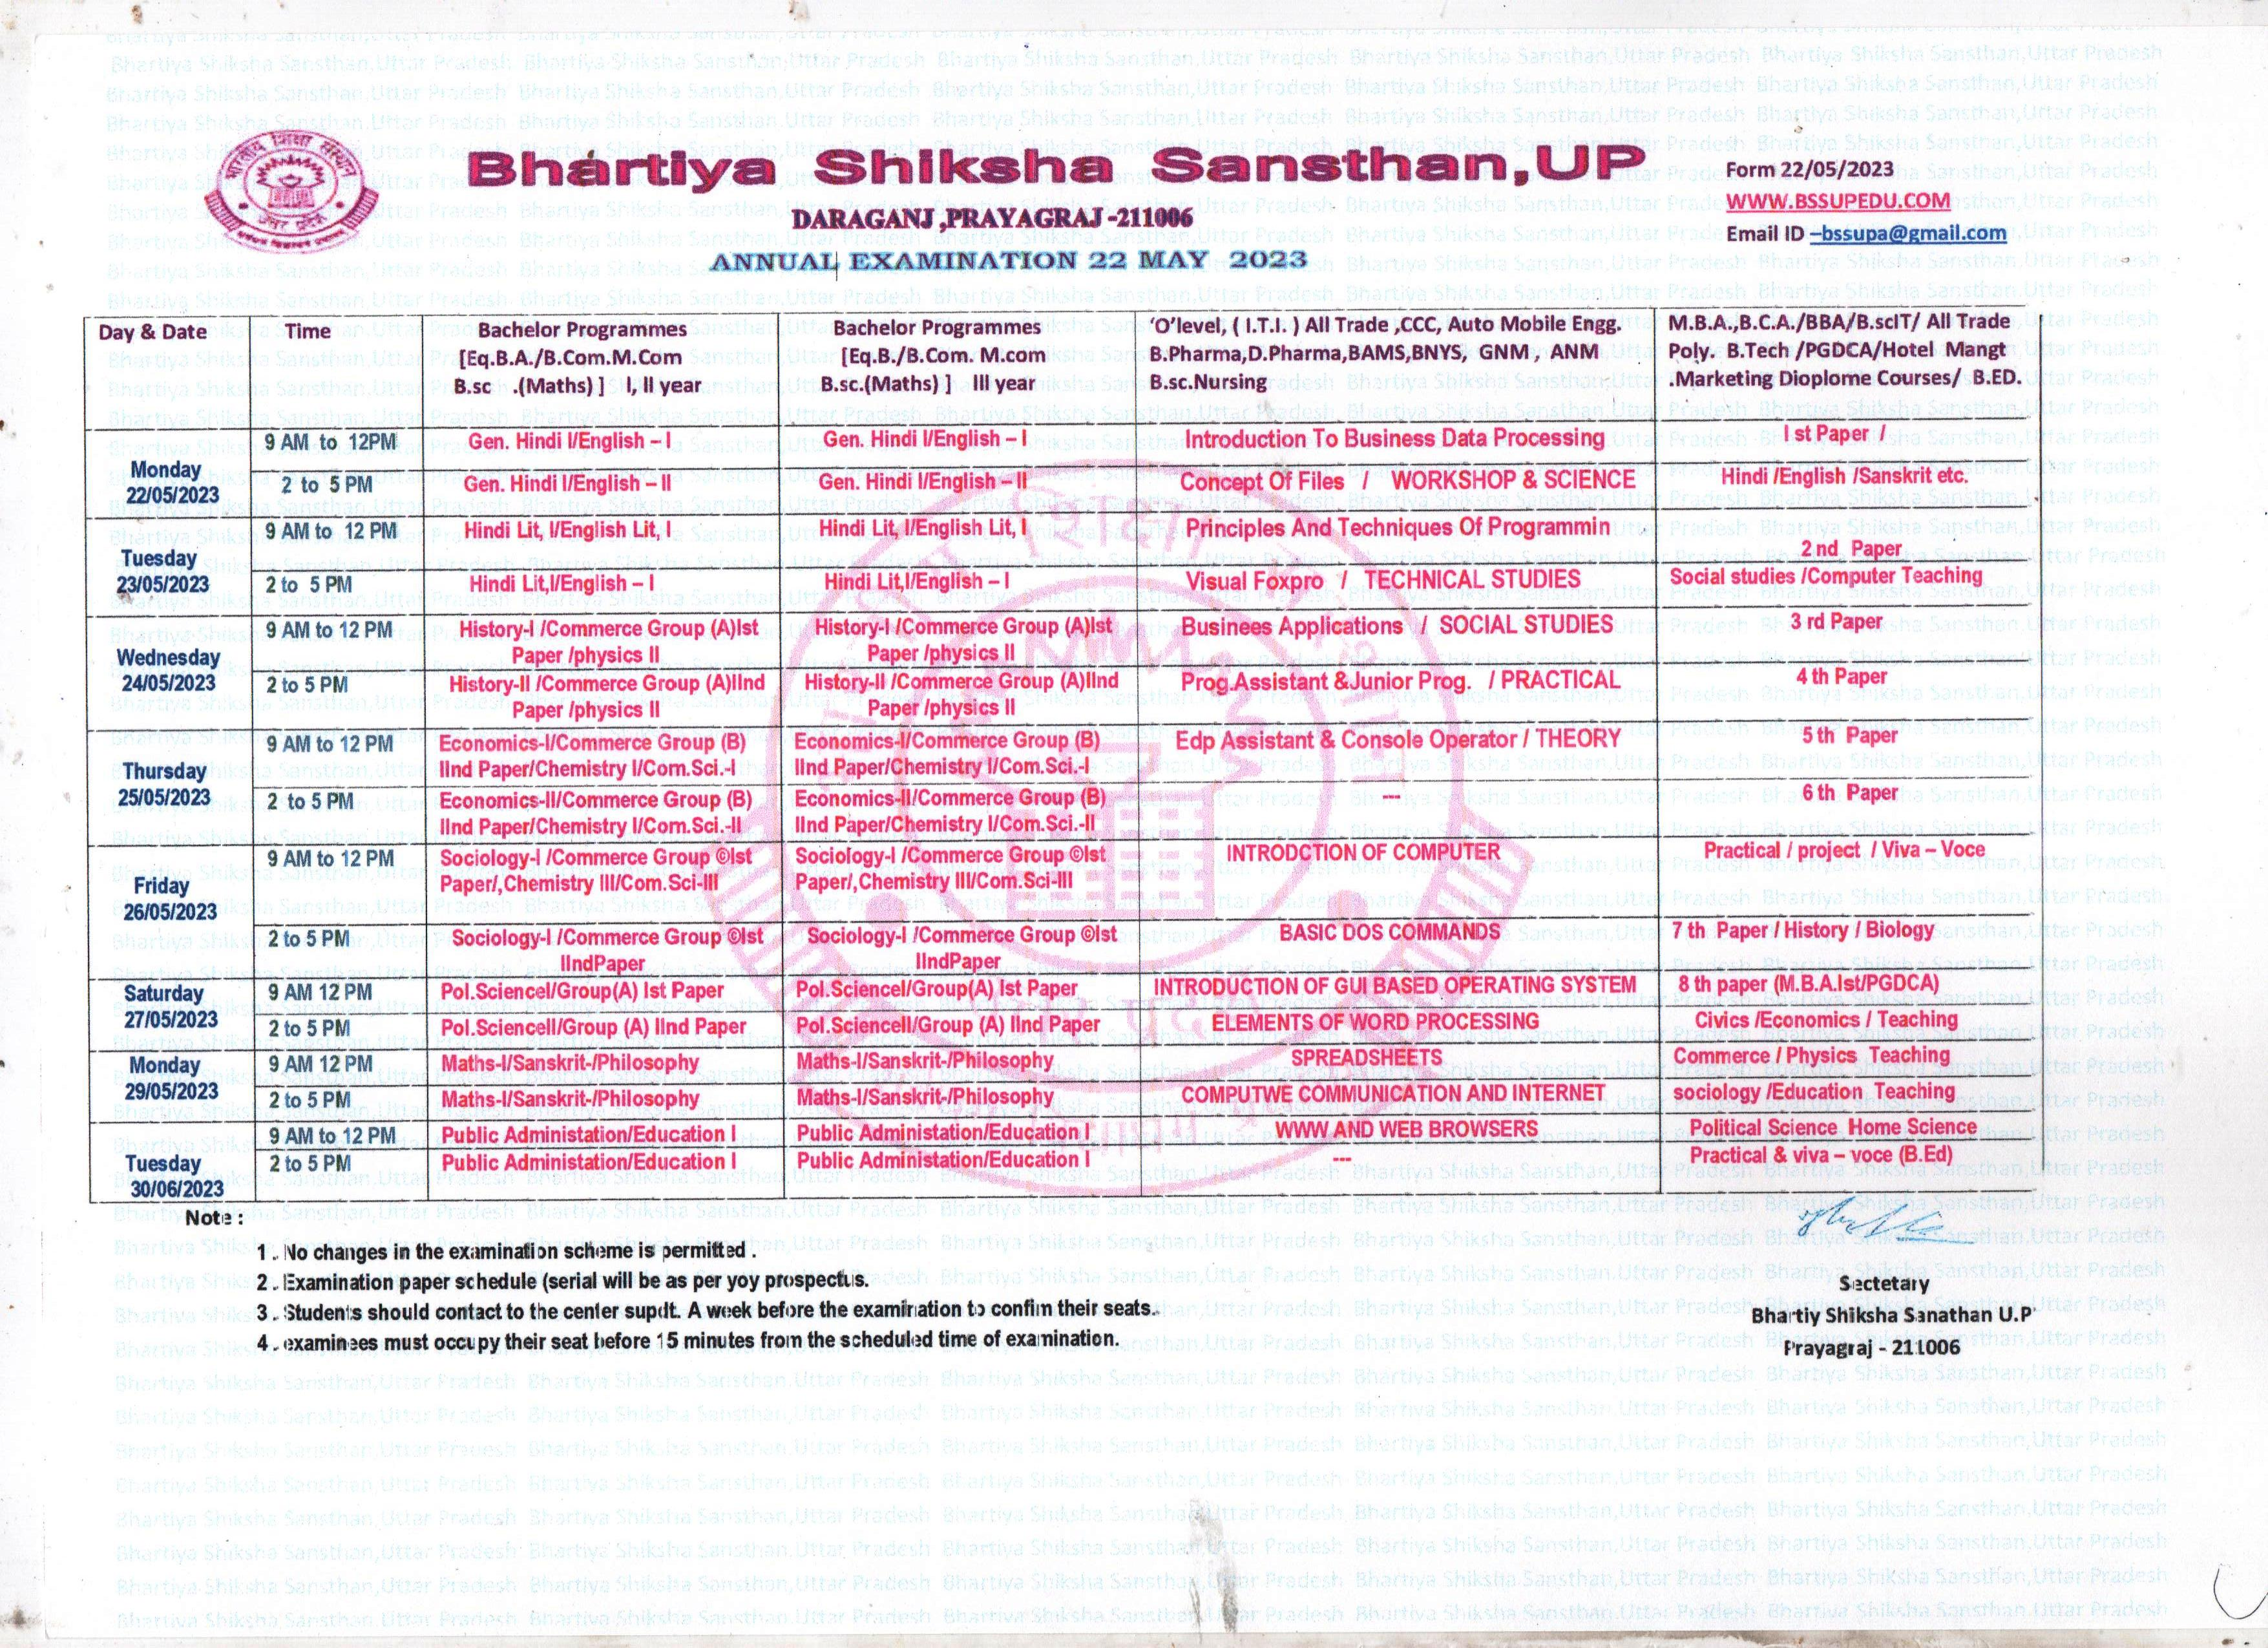 Bhartiya Shiksha Sansthan ,UP
DARAGANJ ,PRAYAGRAJ -211006
ANNUAL EXAMINATION 22 MAY 2023
Form 22/05/2023
WWW.BSSUPEDU.COM
Email ID –bssupa@gmail.com
Day & Date
Time
Bachelor Programmes
[Eq.B.A./B.Com.M.Com
B.sc .(Maths) ] I, II year
Bachelor Programmes
[Eq.B./B.Com. M.com
B.sc.(Maths) ] III year
'O'level, ( I.T.I. ) All Trade ,CCC, Auto Mobile Engg.
B.Pharma,D.Pharma,BAMS,BNYS, GNM , ANM
B.sc.Nursing
M.B.A.,B.C.A./BBA/B.scIT/ All Trade
Poly. B.Tech /PGDCA/Hotel Mangt
.Marketing Dioplome Courses/ B.ED.
Monday
22/05/2023
9 AM to 12PM
Gen. Hindi I/English – I
Gen. Hindi I/English – I
Introduction To Business Data Processing
I st Paper /
2 to 5 PM
Gen. Hindi I/English – II
Gen. Hindi I/English – II
Concept Of Files / WORKSHOP & SCIENCE
Hindi /English /Sanskrit etc.
Tuesday
23/05/2023
9 AM to 12 PM
Hindi Lit, I/English Lit, I
Hindi Lit, I/English Lit, I
Principles And Techniques Of Programmin
2 nd Paper
2 to 5 PM
Hindi Lit,I/English – I
Hindi Lit,I/English – I
Visual Foxpro / TECHNICAL STUDIES
Social studies /Computer Teaching
Wednesday
24/05/2023
9 AM to 12 PM
History-I /Commerce Group (A)Ist
Paper /physics II
History-I /Commerce Group (A)Ist
Paper /physics II
Businees Applications / SOCIAL STUDIES
3 rd Paper
2 to 5 PM
History-II /Commerce Group (A)IInd
Paper /physics II
History-II /Commerce Group (A)IInd
Paper /physics II
Prog.Assistant &Junior Prog. / PRACTICAL
4 th Paper
Thursday
25/05/2023
9 AM to 12 PM
Economics-I/Commerce Group (B)
IInd Paper/Chemistry I/Com.Sci.-I
Economics-I/Commerce Group (B)
IInd Paper/Chemistry I/Com.Sci.-I
Edp Assistant & Console Operator / THEORY
5 th Paper
2 to 5 PM
Economics-II/Commerce Group (B)
IInd Paper/Chemistry I/Com.Sci.-II
Economics-II/Commerce Group (B)
IInd Paper/Chemistry I/Com.Sci.-II
---
6 th Paper
Friday
26/05/2023
9 AM to 12 PM
Sociology-I /Commerce Group ©Ist
Paper/,Chemistry III/Com.Sci-III
Sociology-I /Commerce Group ©Ist
Paper/,Chemistry III/Com.Sci-III
INTRODCTION OF COMPUTER
Practical / project / Viva – Voce
2 to 5 PM
Sociology-I /Commerce Group ©Ist
IIndPaper
Sociology-I /Commerce Group ©Ist
IIndPaper
BASIC DOS COMMANDS
7 th Paper / History / Biology
Saturday
27/05/2023
9 AM 12 PM
Pol.ScienceI/Group(A) Ist Paper
Pol.ScienceI/Group(A) Ist Paper
INTRODUCTION OF GUI BASED OPERATING SYSTEM
8 th paper (M.B.A.Ist/PGDCA)
2 to 5 PM
Pol.ScienceII/Group (A) IInd Paper
Pol.ScienceII/Group (A) IInd Paper
ELEMENTS OF WORD PROCESSING
Civics /Economics / Teaching
Monday
29/05/2023
9 AM 12 PM
Maths-I/Sanskrit-/Philosophy
Maths-I/Sanskrit-/Philosophy
SPREADSHEETS
Commerce / Physics Teaching
2 to 5 PM
Maths-I/Sanskrit-/Philosophy
Maths-I/Sanskrit-/Philosophy
COMPUTWE COMMUNICATION AND INTERNET
sociology /Education Teaching
Tuesday
30/06/2023
9 AM to 12 PM
Public Administation/Education I
Public Administation/Education I
WWW AND WEB BROWSERS
Political Science Home Science
2 to 5 PM
Public Administation/Education I
Public Administation/Education I
---
Practical & viva – voce (B.Ed)
Note :
1 . No changes in the examination scheme is permitted .
2 . Examination paper schedule (serial will be as per yoy prospectus.
3 . Students should contact to the center supdt. A week before the examination to confim their seats.
4 . examinees must occupy their seat before 15 minutes from the scheduled time of examination.
Sectetary
Bhartiy Shiksha Sanathan U.P
Prayagraj - 211006
Bhartiya Shiksha Sansthan,Uttar Pradesh